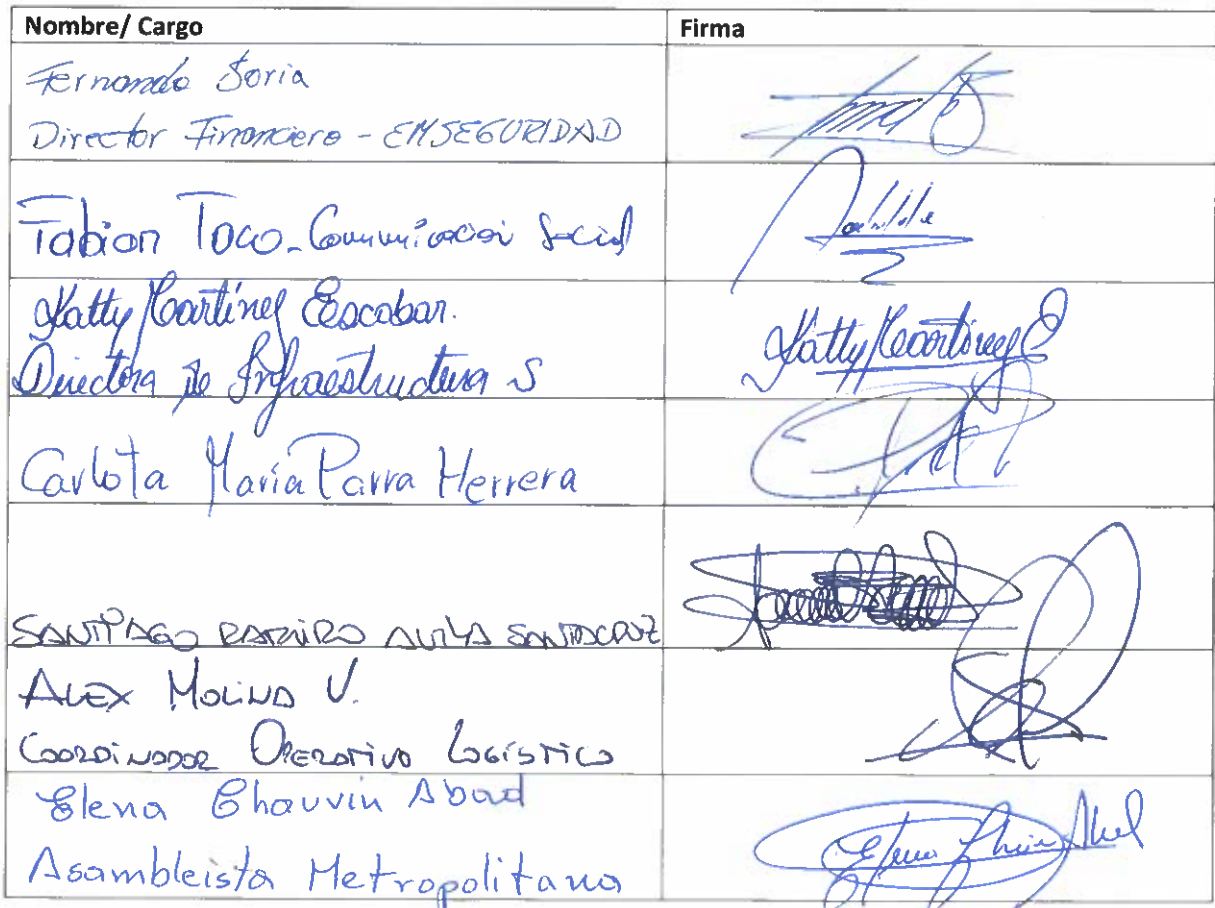 Nombre/ Cargo
Firma
Fernando Soria
Director Financiero - EMSEGURIDAD
Fabian Toco - Comunicacion Social
Katty Martínez Escobar.
Directora de Infraestructura S
Katty Martínez E
Carlota María Parra Herrera
SANTIAGO RAMIRO AVILA SANTACRUZ
ALEX MOLINA V.
COORDINADOR OPERATIVO LOGÍSTICO
Elena Chauvin Abad
Asambleista Metropolitana